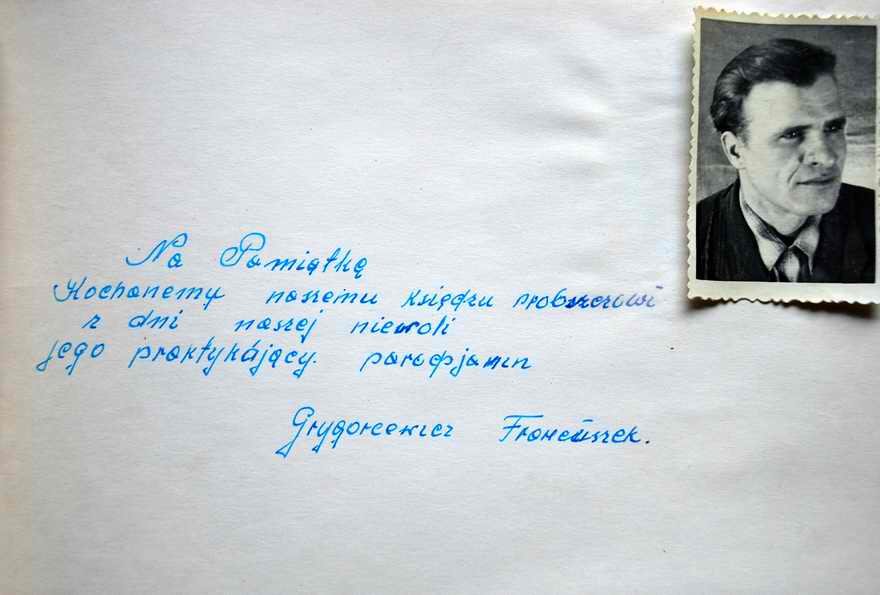 Na Pamiątkę
Kochanemu naszemu księdzu probszczowi
z dni naszej niewoli
jego praktykájący. parapjanin
Grygorcewicz Franciszek.